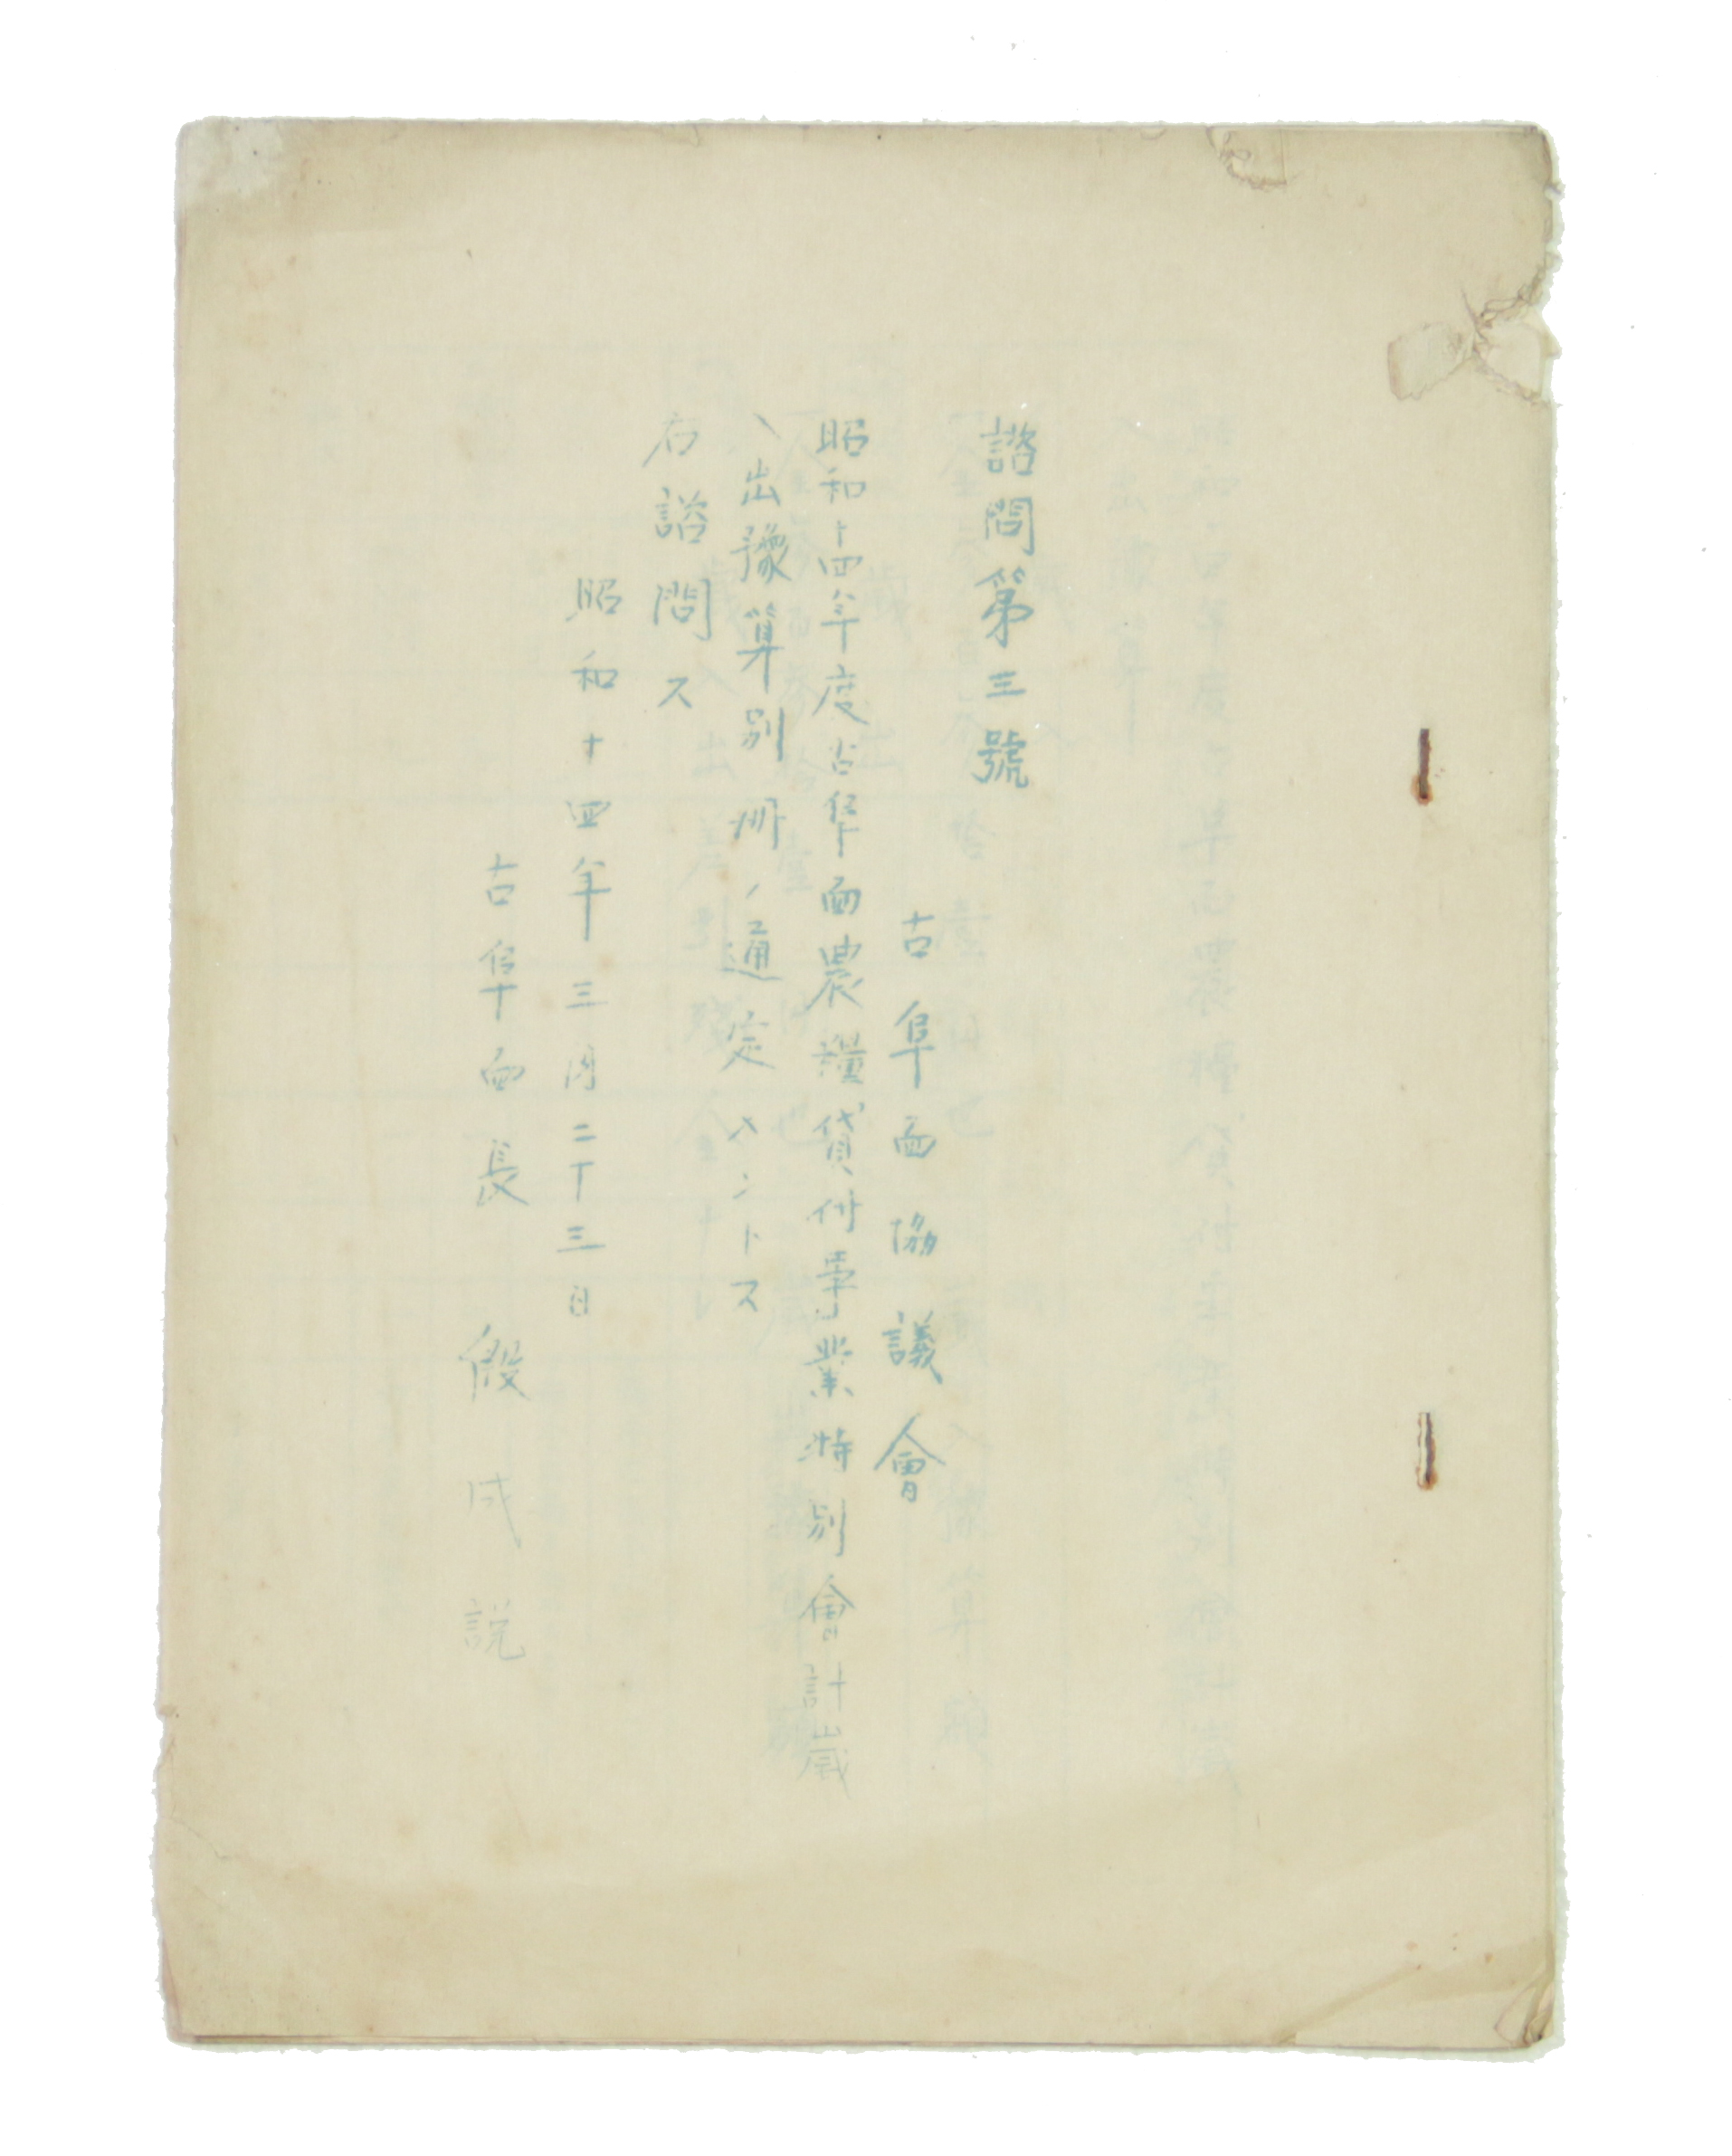 諮問第三號
古阜面協議會
昭和十四年度古阜面農糧貸付事業特別會計歲
入出豫算別冊ノ通定メントス
右諮問ス
昭和十四年三月二十三日
古阜面長 殷成說